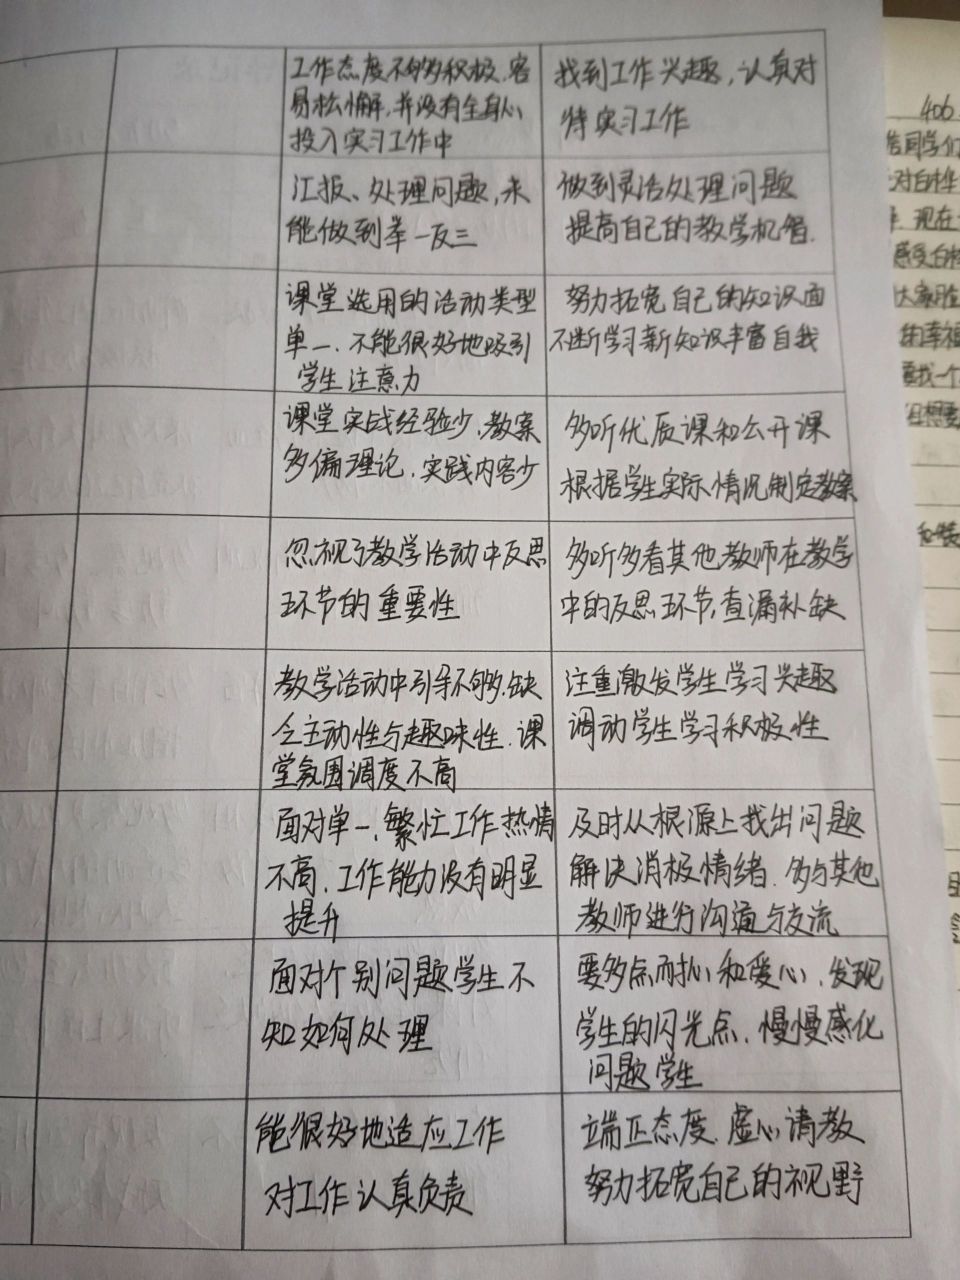 工作态度不够积极、容
易松懈,并没有全身心
投入实习工作中
找到工作兴趣,认真对
待实习工作
汇报、处理问题,未
能做到举一反三
做到灵活处理问题
提高自己的教学机智.
课堂选用的活动类型
单一、不能很好地吸引
学生注意力
努力拓宽自己的知识面
不断学习新知识丰富自我
课堂实战经验少、教案
多偏理论、实践内容少
多听优质课和公开课
根据学生实际情况制定教案
忽视了教学活动中反思
环节的重要性
多听多看其他教师在教学
中的反思环节,查漏补缺
教学活动中引导不够、缺
乏主动性与趣味性、课
堂氛围调度不高
注重激发学生学习兴趣
调动学生学习积极性
面对单一、繁忙工作热情
不高、工作能力没有明显
提升
及时从根源上找出问题
解决消极情绪、多与其他
教师进行沟通与交流
面对个别问题学生不
知如何处理
要多点耐心和爱心、发现
学生的闪光点、慢慢感化
问题学生
能很好地适应工作
对工作认真负责
端正态度、虚心请教
努力拓宽自己的视野
406
同学们
对白桦
现在
感受白桦
的幸福
要找一个
但想要